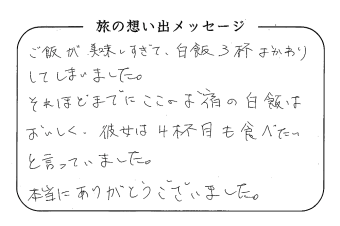 旅の想い出メッセージ
ご飯が美味しすぎて、白飯3杯おかわり
してしまいました。
それほどまでにここのお宿の白飯は
おいしく、彼女は4杯目も食べたい
と言っていました。
本当にありがとうございました。